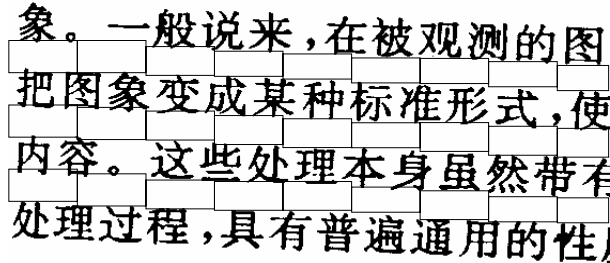 象。一般说来,在被观测的图
把图象变成某种标准形式,使
内容。这些处理本身虽然带有
处理过程,具有普遍通用的性